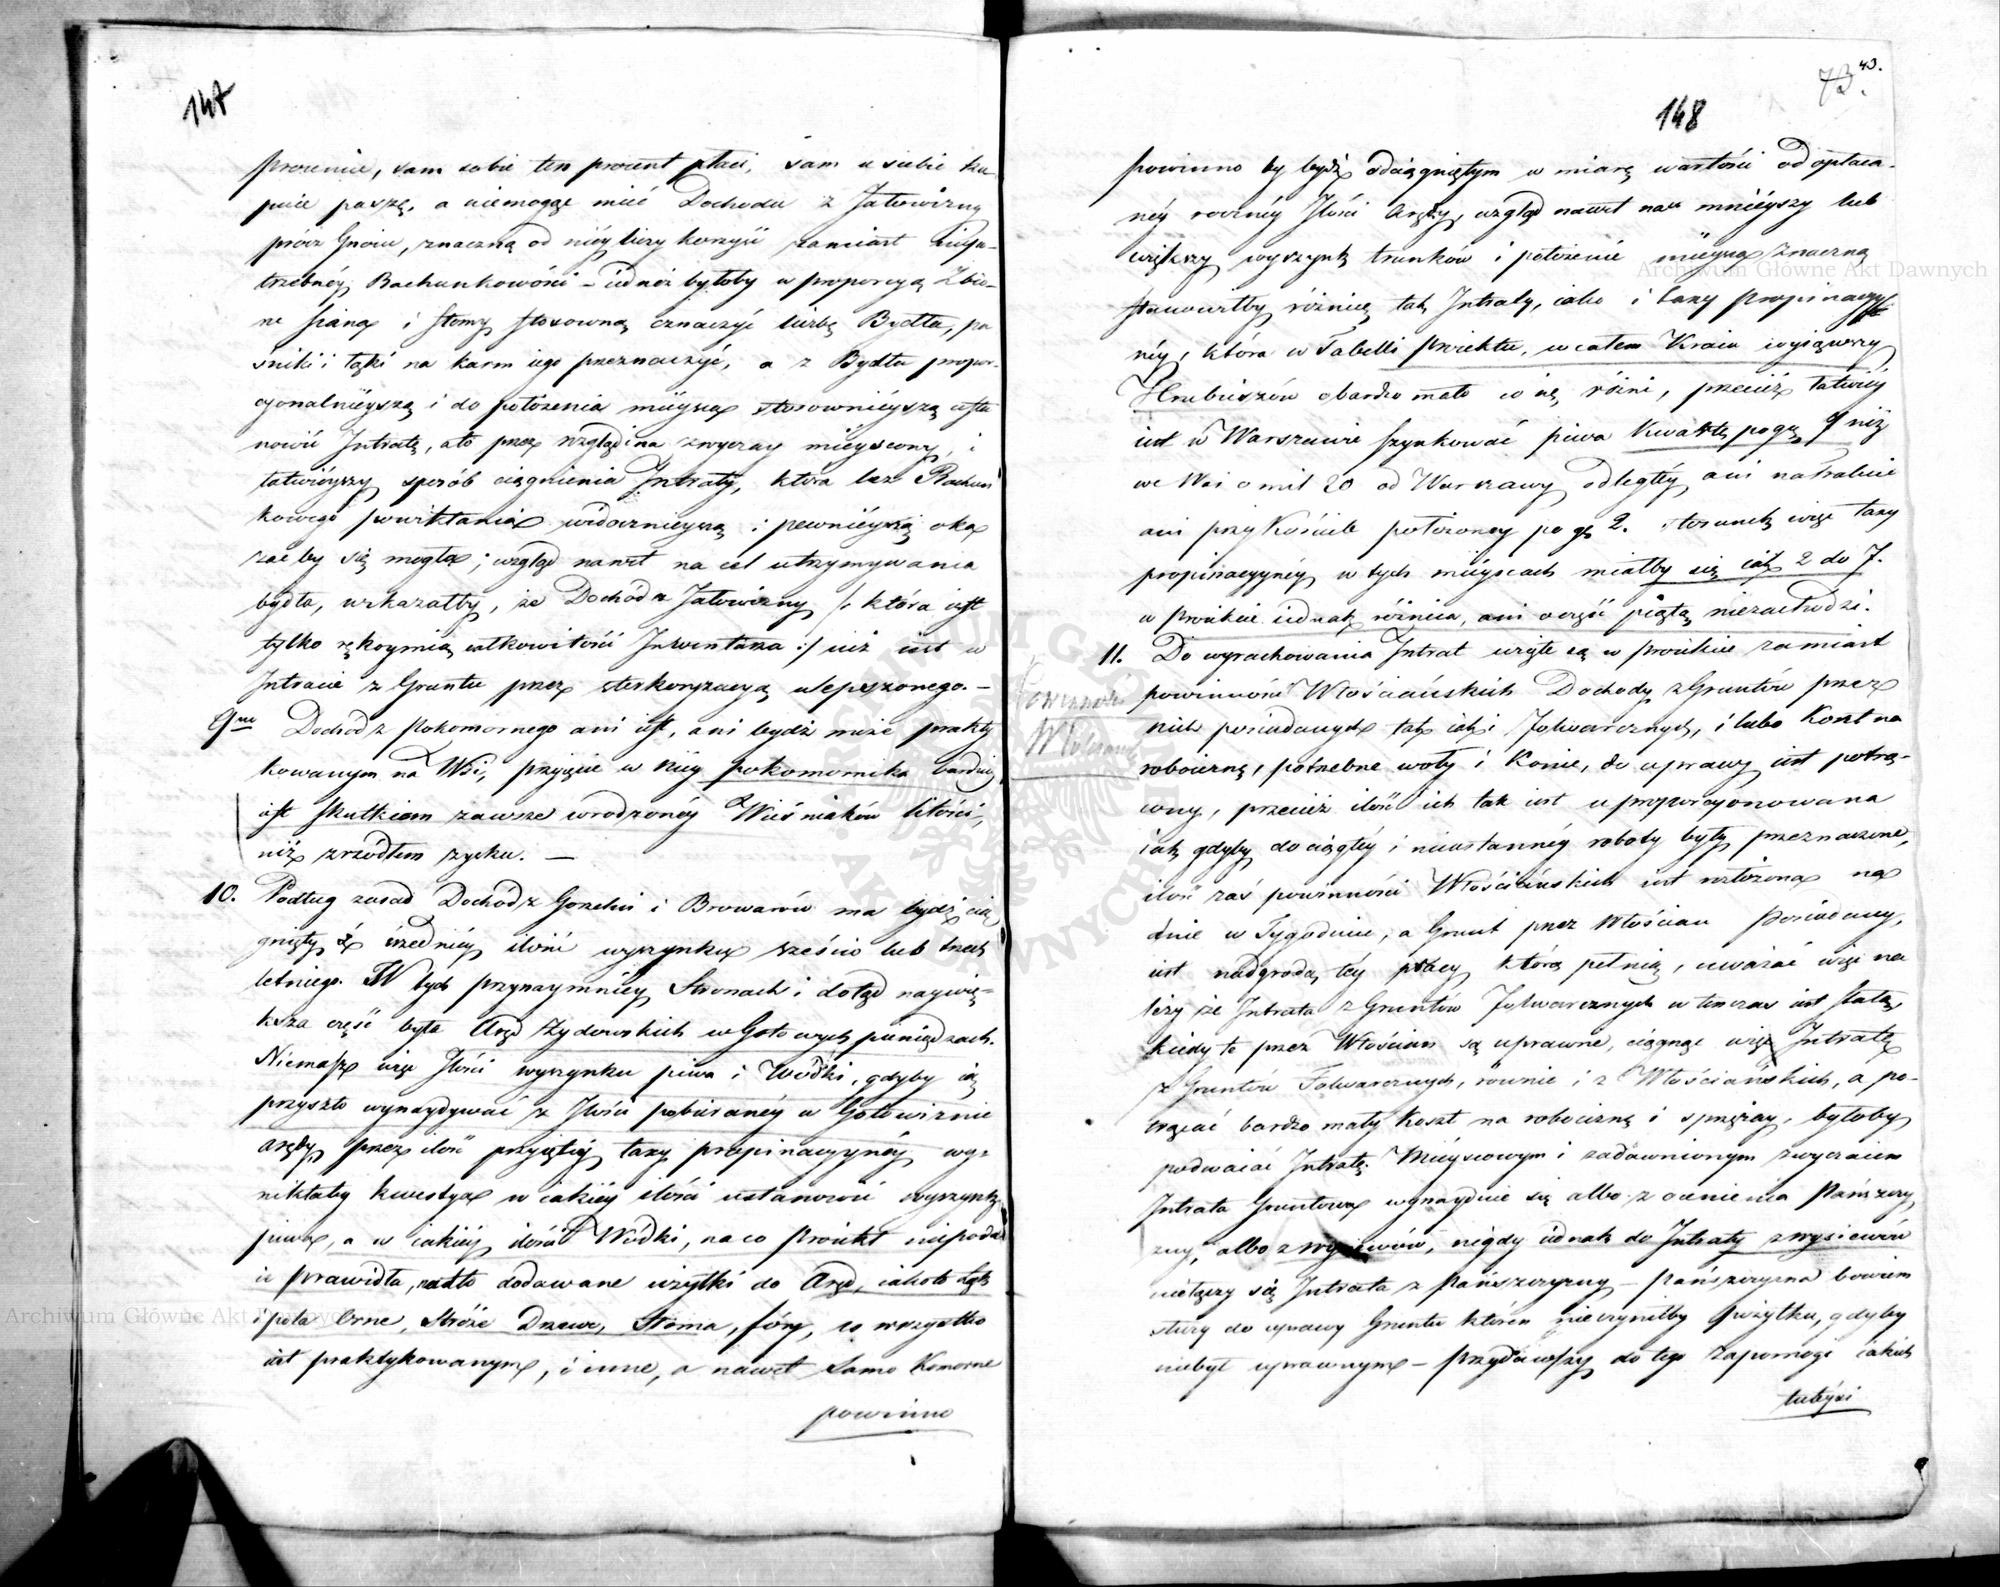 147
procencie, sam sobie ten procent płaci, sam u siebie ku
puie paszę, a niemogąc mieć Dochodu z Jałowizny
prócz Gnoiu, znaczną od niéy liczy korzyść zamiast niepo-
trzebnéy Rachunkowości – iednéż byłoby w proporcyą Zbio-
ru siana i słomy stosowną oznaczyć liczbę Bydła, pa
śniki i łąki na karm iego przeznaczyć, a z Bydła propor-
cyonalnieyszą i do położenia mieysca stosownieyszą usta
nowić Intratę, a to przez wzgląd na zwyczay mieyscowy, i
łatwieyszy sposób ciągnienia Intraty, która bez Rachun
kowego powikłania widocznieyszą i pewnieyszą oka
zać by się mogła; wzgląd nawet na cel utrzymywania
bydła, wskazałby, że Dochód z Jałowizny /: która iest
tylko rękoymią całkowitości Inwentarza :/ iuż iest w
Intracie z Gruntu przez sterkoryzacyą ulepszonego. –
9no Dochód z Pokomornego ani iest, ani bydź może prakty
kowanym na Wsi, przyięcie w niéy pokomornika bardziéy
iest skutkiem zawsze wrodzonéy Wieśniaków litości,
niż zrzódłem zysku. —
10. Podług zasad Dochód z Gorzelni i Browarów ma bydź cią
gnięty z średniéy ilości wyszynku sześcio lub trzech
letniego. W tych przynaymniéy Stronach i dotąd naywię-
ksza część była Aręd Żydowskich w Gotowych pieniędzach.
Niemasz więc Ilości wyszynku piwa i Wódki, gdyby ią
przyszło wynaydywać z Ilości pobieranéy w Gotowiznie
arędy, przez ilość przyiętéy taxy propinacyynéy wy-
nikłaby kwestya w iakiéy ilości ustanowić wyszynk
piwa, a w iakiéy ilości Wódki, na co Proiekt niepoda
ie prawidła, nadto dodawane użytki do Aręd, iakoto Łąki
i pola Orne, Stróże Drzewo, Słoma, fóry, co wszystko
iest praktykowanym, i inne, a nawet Samo Komorne
powinno
73. 40.
148
powinno by bydź odciągniętym w miarę wartości od opłaca-
néy rocznéy Ilości Arędy, wzgląd nawet na mnieyszy lub
większy wyszynk trunków i położenie mieysca znaczną
stanowiłby różnicę tak Intraty, iako i taxy propinacyy
néy, która w Tabelli Proiektu, w całem Kraiu wyiąwszy
Hrubieszów o bardzo mało co się różni, przecież łatwiéy
iest w Warszawie szynkować piwa Kwartę po gr. 7 niż
we Wsi o mil 20 od Warszawy odległéy ani na trakcie
ani przy Kościele położoney po gr 2. stosunek więc taxy
propinacyynéy w tych mieyscach miałby się iak 2 do 7.
w Proiekcie iednak różnica, ani o część piątą niezachodzi.
11. Do wyrachowania Intrat wzięte są w Proiekcie zamiast
powinności Włościańskich Dochody z Gruntów przez
nich posiadanych tak iak i folwarcznych, i lubo Koszt na
robociznę, potrzebne woły i Konie, do uprawy iest potrą-
cony, przecież ilość ich tak iest uproporcyonowana
iak gdyby do ciągłéy i nieustannéy roboty były przeznaczone,
ilość zaś powinności Włościańskich iest rozłożona na
dnie w Tygodniu, a Grunt przez Włościan Posiadany,
iest nadgrodą téy pracy którą pełnią, uważać więc na
leży że Intrata z Gruntów folwarcznych w ten czas iest stałą,
kiedy te przez Włościan są uprawne, ciągnąc więc Intratę
z Gruntów Folwarcznych, równie i z Włościańskich, a po-
trącać bardzo mały Koszt na robociznę i sprzężay, byłoby
podwaiać Intratę. Mieyscowym i zadawnionym zwyczaiem
Intrata Gruntowa wynayduie się albo z ocenienia Pańszczy
zny, albo z wysiewów, nigdy iednak do Intraty z wysiewów
niełączy się Intrata z Pańszczyzny – Pańszczyzna bowiem
służy do uprawy Gruntu któren nieczyniłby pożytku, gdyby
niebył uprawnym – Przydawszy do tego zapomogi iakich
tutéysi
Powinności
Włościan